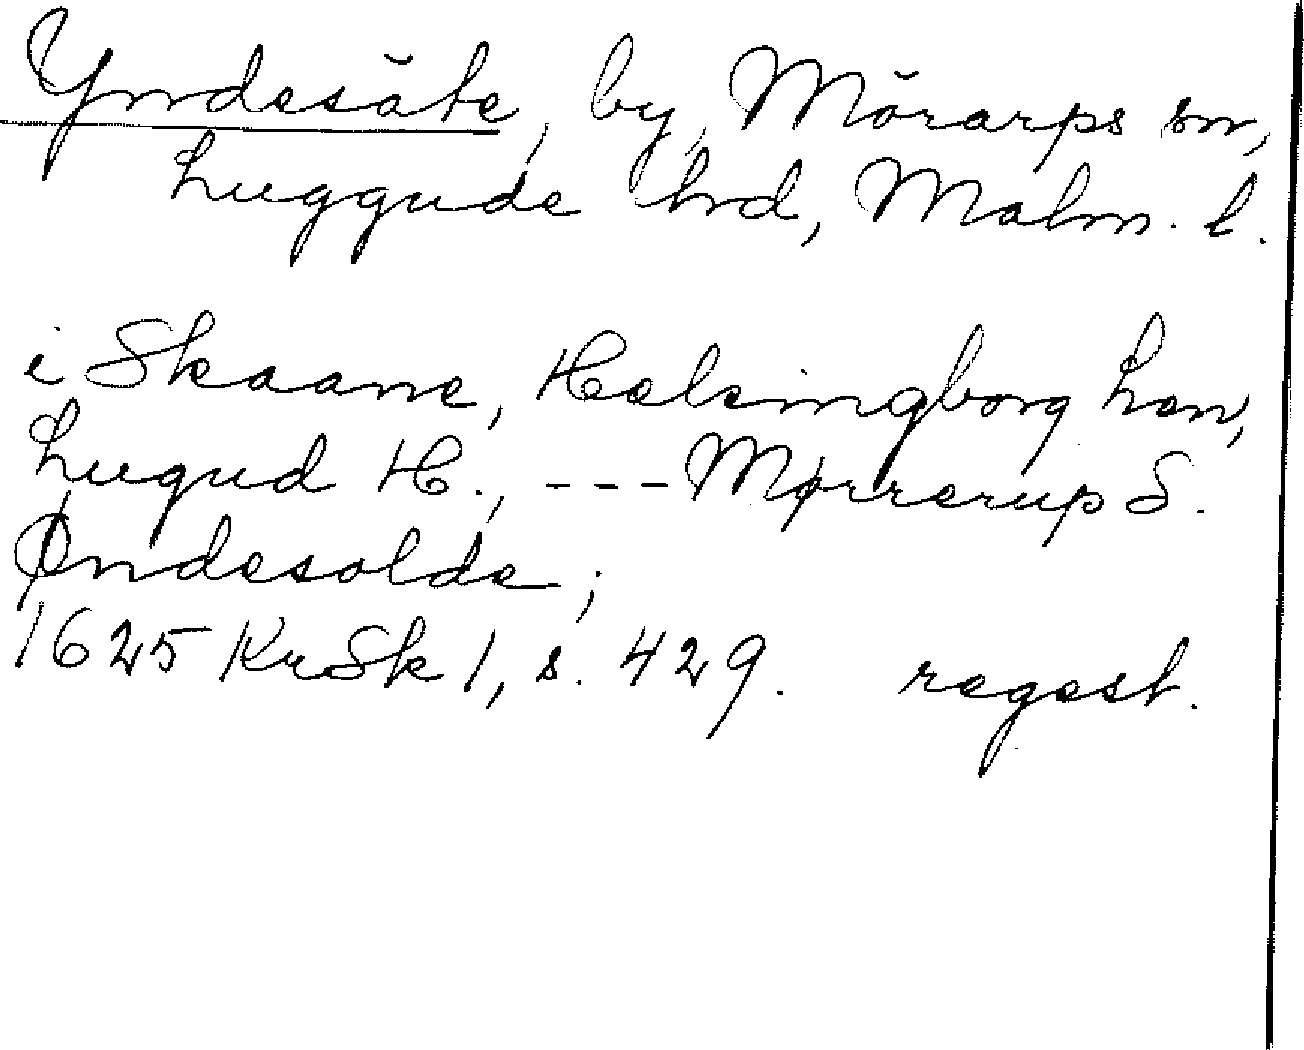 Yndesäte, by, Mörarps sn,
Luggude hrd, Malm. l.
i Skaane, Helsingborg Len,
Lugud H., --- Mørrerup S.
Øndesolde;
1625 KrSk 1, s. 429. regest.